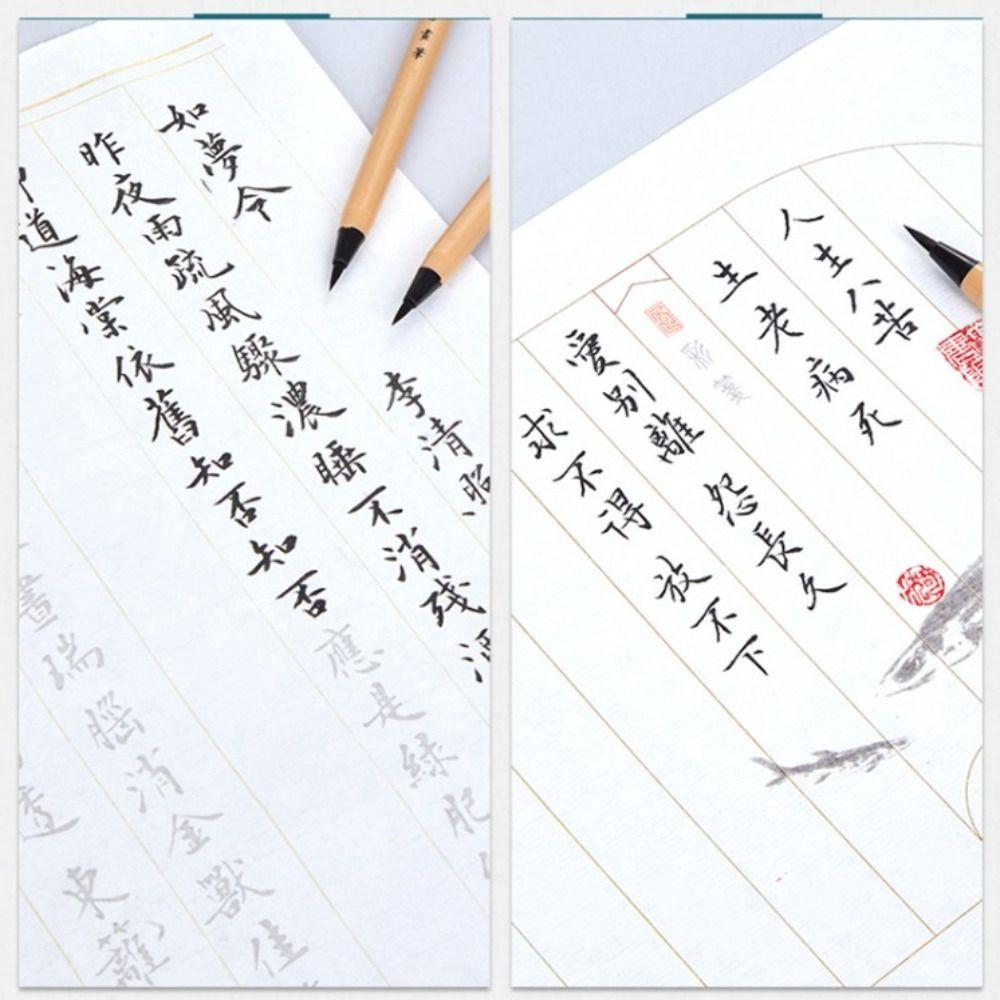 如夢令 李清照
昨夜雨疏風驟濃睡不消残
道海棠依舊知否知否應是綠肥
晝瑞腦消金獸佳
透東籬
人生八苦
生老病死
彩箋
愛別離 怨長久
求不得 放不下